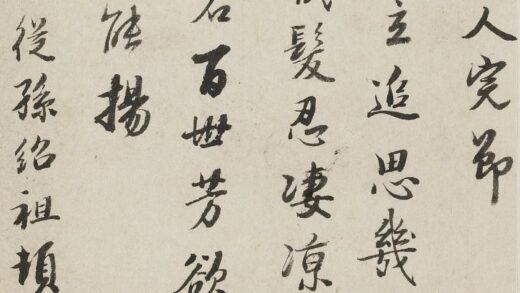 人完節
立追思幾
髮忍凄涼
百世芳欲
能揚
從孫紹祖頓